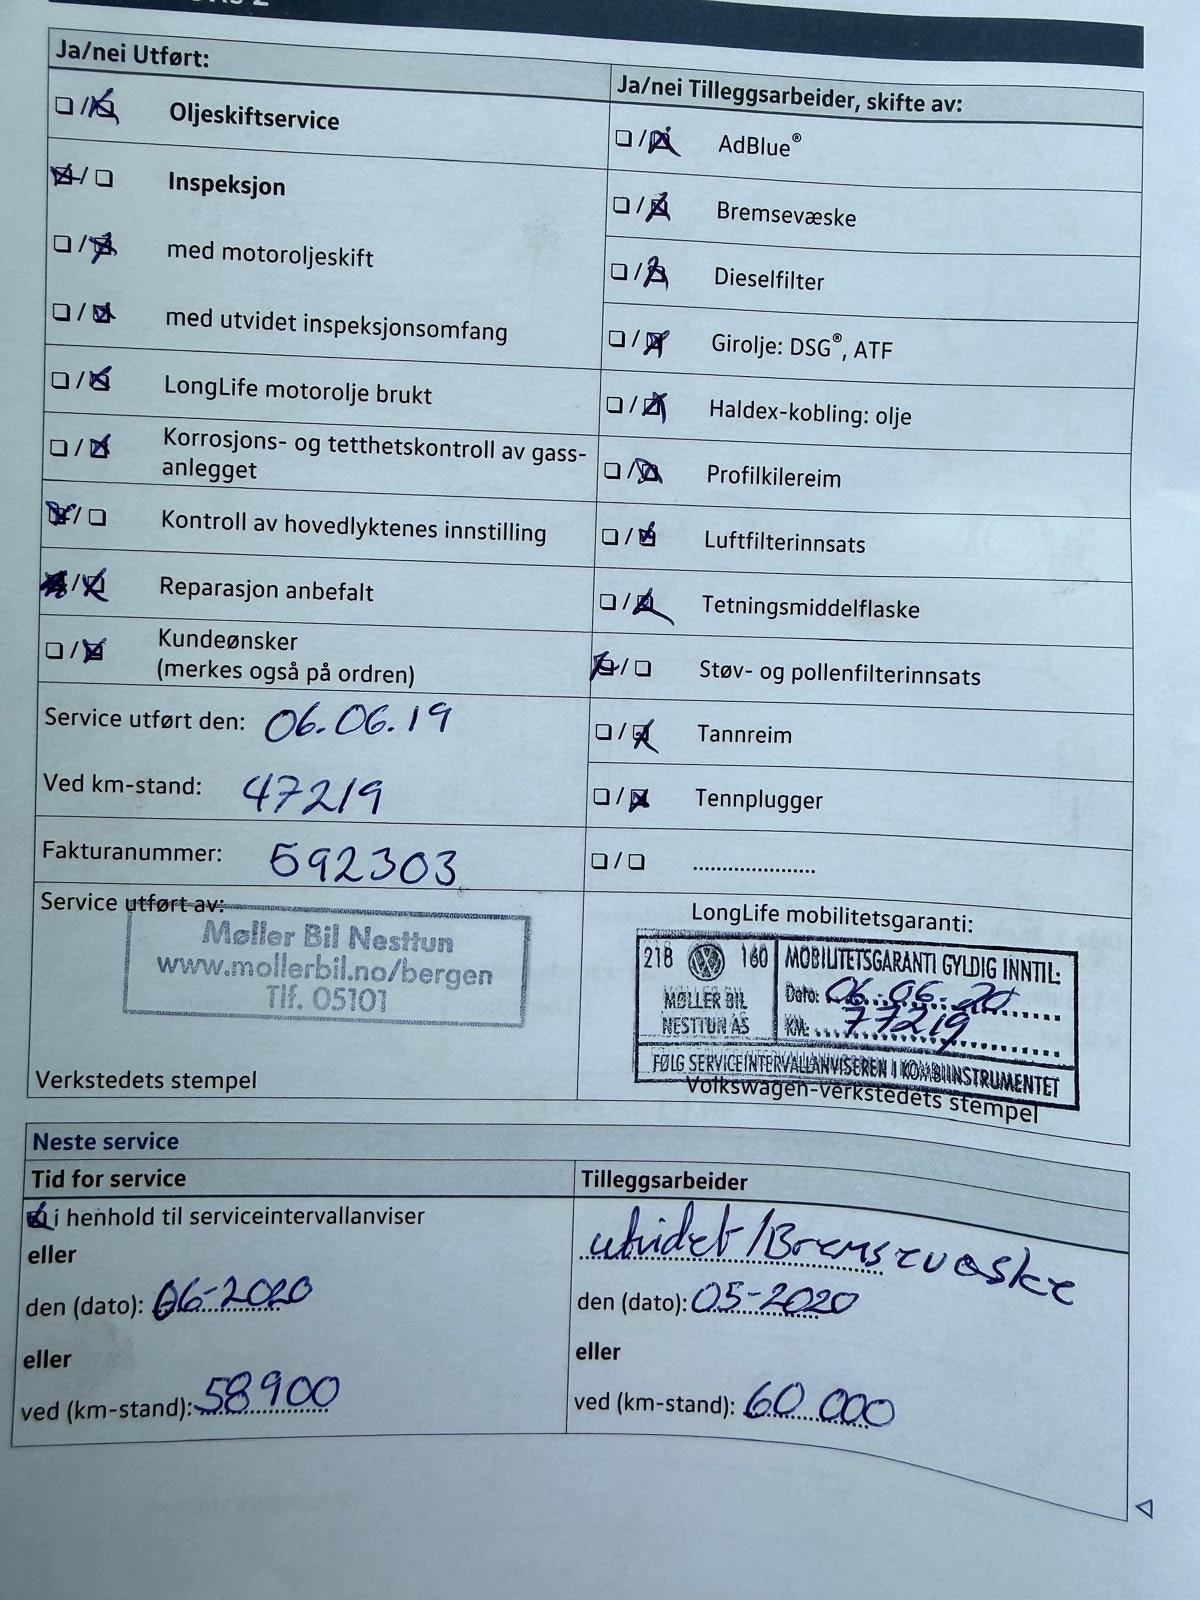 Ja/nei Utført:
Oljeskiftservice
Inspeksjon
med motoroljeskift
med utvidet inspeksjonsomfang
LongLife motorolje brukt
Korrosjons- og tetthetskontroll av gass-
anlegget
Kontroll av hovedlyktenes innstilling
Reparasjon anbefalt
Kundeønsker
(merkes også på ordren)
Service utført den: 06.06.19
Ved km-stand: 47219
Fakturanummer: 592303
Service utført av:
Møller Bil Nesttun
www.mollerbil.no/bergen
Tlf. 05101
Verkstedets stempel
Ja/nei Tilleggsarbeider, skifte av:
AdBlue®
Bremsevæske
Dieselfilter
Girolje: DSG®, ATF
Haldex-kobling: olje
Profilkilereim
Luftfilterinnsats
Tetningsmiddelflaske
Støv- og pollenfilterinnsats
Tannreim
Tennplugger
....................
LongLife mobilitetsgaranti:
218 160
MØLLER BIL
NESTTUN AS
MOBILITETSGARANTI GYLDIG INNTIL:
Dato: 06.06-20
KM: 77219
FØLG SERVICEINTERVALLANVISEREN I KOMBIINSTRUMENTET
Volkswagen-verkstedets stempel
Neste service
Tid for service
i henhold til serviceintervallanviser
eller
den (dato): 06-2020
eller
ved (km-stand): 58900
Tilleggsarbeider
utvidet/Bremsevæske
den (dato): 05-2020
eller
ved (km-stand): 60 000